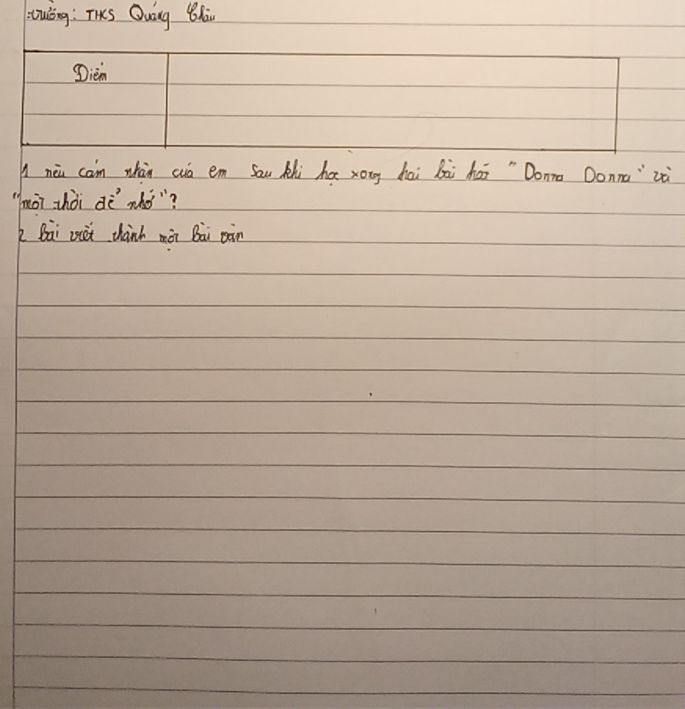 trường: THCS Quảng Châu
Điểm
1 nêu cảm nhận của em sau khi học xong hai bài hát "Donna Donna" và
"một thời để nhớ"?
2 Bài viết thành một Bài văn